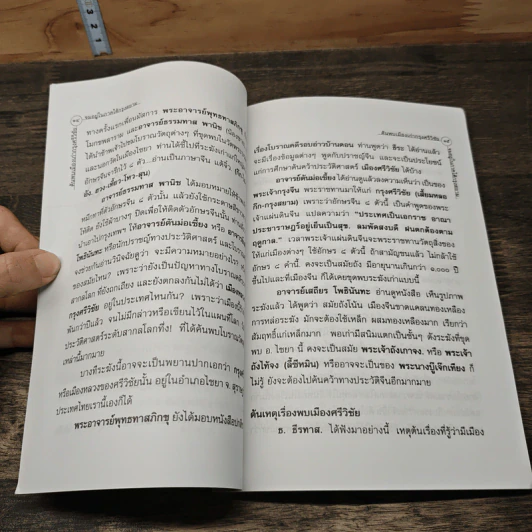 ทางครั้งแรกเพื่อนมัสการ พระอาจารย์พุทธทาสภิกขุ
โมกขพลาราม และอาจารย์ธรรมทาส พานิช
ได้นำข้าพเจ้าไปชมโบราณวัตถุต่างๆ ที่ขุดพบใน
และนอกวัดในเมืองไชยา ท่านได้ชี้ไปที่ระฆังเก่าแก่
อักษรจีนจารึกไว้ ๔ ตัว...อ่านเป็นภาษาจีน แต้จิ๋ว
อาจารย์ธรรมทาส พานิช ได้มอบหมายให้
หมึกทาที่ตัวอักษรจีน ๔ ตัวนั้น แล้วยังใช้กระดาษ
ให้ติด ยังใช้ผ้าบางๆ ปิดเพื่อให้ติดตัวอักษรจีนนั้น
นำเอาไปกรุงเทพฯ ให้อาจารย์ตันม่อเซี้ยง หรือ อาจารย์
โพธินันทะ หรือนักปราชญ์ทางประวัติศาสตร์ และ
จงช่วยกันอ่านวินิจฉัยดูว่า จะมีความหมายอย่างไร
ของสมัยไหน? เพราะว่ายังเป็นปัญหาทางโบราณคดี
สากลโลก ที่ยังถกเถียง และยังตกลงกันไม่ได้ว่า เมือง
กรุงศรีวิชัย อยู่ในประเทศไหนกัน? เพราะว่าเมือง
พันกว่าปีแล้ว จนไม่มีกล่าวหรือเขียนไว้ในแผนที่โลก
ประวัติศาสตร์ระดับสากลโลกทิ้ง! ที่ได้ค้นพบใน
เหล่านี้มากมาย
บางทีระฆังนี้อาจจะเป็นพยานปากเอกว่า
หรือเมืองหลวงของศรีวิชัยนั้น อยู่ในอำเภอไชยา จ.
ประเทศไทยเรานี้เองก็ได้
พระอาจารย์พุทธทาสภิกขุ ยังได้มอบหนังสือ
ค้นพบเมืองเก่ากรุงศรีวิชัย
เรื่องโบราณคดีรอบอ่าวบ้านดอน ท่านพูดว่า ธีระ ได้อ่านแล้ว
จะมีเรื่องข้อมูลต่างๆ พูดกับปราชญ์จีน และจะเป็นประโยชน์
แก่การศึกษาค้นคว้าประวัติศาสตร์ เมืองศรีวิชัย ได้บ้าง
อาจารย์ตันม่อเซี้ยง ได้อ่านดูแล้วลงความเห็นว่า เป็นของ
พระเจ้ากรุงจีน พระราชทานมาให้แก่ กรุงศรีวิชัย
เพราะว่าอักษรจีน ๔ ตัวนี้ เป็นคำพูดของพระ
เจ้าแผ่นดินจีน แปลความว่า "ประเทศเป็นเอกราช อาณา
ประชาราษฎร์อยู่เย็นเป็นสุข. ลมพัดสงบดี ฝนตกต้องตาม
ฤดูกาล." เวลาพระเจ้าแผ่นดินจีนจะพระราชทานวัตถุสิ่งของ
ให้แก่เมืองต่างๆ ใช้อักษร ๔ ตัวนี้ ถ้าสามัญชนแล้ว ไม่กล้าใช้
อักษร ๔ คำนี้. คงจะเป็นสมัยถัง มีอายุนานเกินกว่า ๑.๐๐๐ ปี
ขึ้นไปและที่เมืองจีน ก็ได้เคยขุดพบระฆังเก่าแบบนี้
อาจารย์เสถียร โพธินันทะ อ่านดูหนังสือ เห็นรูปภาพ
ระฆังแล้ว ได้พูดว่า สมัยถังโน้น เมืองจีนขาดแคลนทองเหลือง
การหล่อระฆัง มักจะต้องใช้เหล็ก ผสมทองเหลืองมาก เรียกว่า
สัมฤทธิ์แก่เหล็กมาก พอเก่ามีสนิมแตกเป็นชั้นๆ ดังระฆังที่ขุด
พบ อ. ไชยา นี้ คงจะเป็นสมัย พระเจ้าถังเกาจง. หรือ พระเจ้า
ถังไท้จง (ลี้ซีหมิน) หรืออาจจะเป็นของ พระนางบู๊เจ๊กเทียง ก็
ไม่รู้ ยังจะต้องไปค้นคว้าทางประวัติจีนอีกมากมาย
ต้นเหตุเรื่องพบเมืองศรีวิชัย
ธ. ธีรทาส. ได้ฟังมาอย่างนี้ เหตุต้นเรื่องที่รู้ว่ามีเมือง